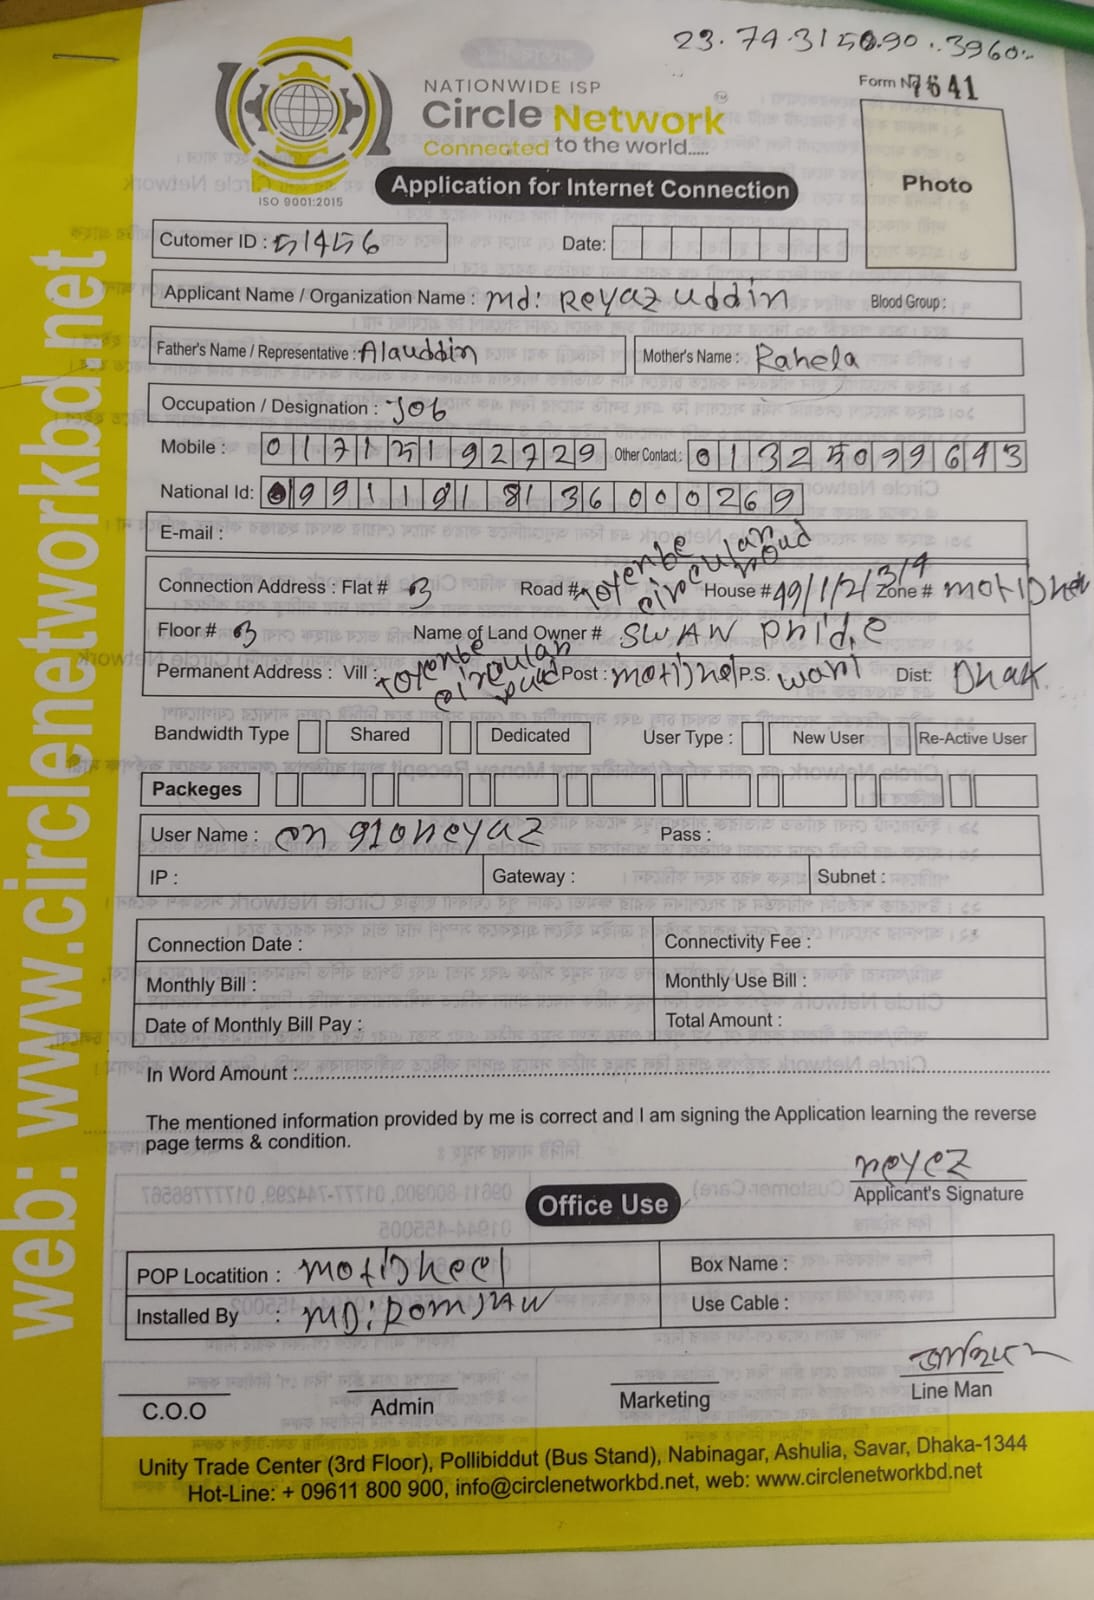 23.74.315 90..3960..
Form No 7641
NATIONWIDE ISP
Circle Network
Connected to the world.....
ISO 9001:2015
Application for Internet Connection
Photo
Cutomer ID : 51456 Date:
Applicant Name / Organization Name : md: Reyaz uddin Blood Group :
Father's Name / Representative : Alauddin Mother's Name : Rahela
Occupation / Designation : Job
Mobile : 01715192729 Other Contact : 01325099643
National Id: 1991191 8136000269
E-mail :
Connection Address : Flat # 3 Road # toyenbe circular road House # 49/1/2/3/4 Zone # motijheel
Floor # 3 Name of Land Owner # SWAN
Permanent Address : Vill : toyenbe circular road Post : motijheel P.S. wari Dist: Dhaka
Bandwidth Type Shared Dedicated User Type : New User Re-Active User
Packeges
User Name : cn 910reyaz Pass :
IP : Gateway : Subnet :
Connection Date : Connectivity Fee :
Monthly Bill : Monthly Use Bill :
Date of Monthly Bill Pay : Total Amount :
In Word Amount :
The mentioned information provided by me is correct and I am signing the Application learning the reverse
page terms & condition.
reyez
Applicant's Signature
Office Use
POP Locatition : motijheel Box Name :
Installed By : MD: Romjan Use Cable :
C.O.O Admin Marketing Line Man
Unity Trade Center (3rd Floor), Pollibiddut (Bus Stand), Nabinagar, Ashulia, Savar, Dhaka-1344
Hot-Line: + 09611 800 900, info@circlenetworkbd.net, web: www.circlenetworkbd.net
web: www.circlenetworkbd.net